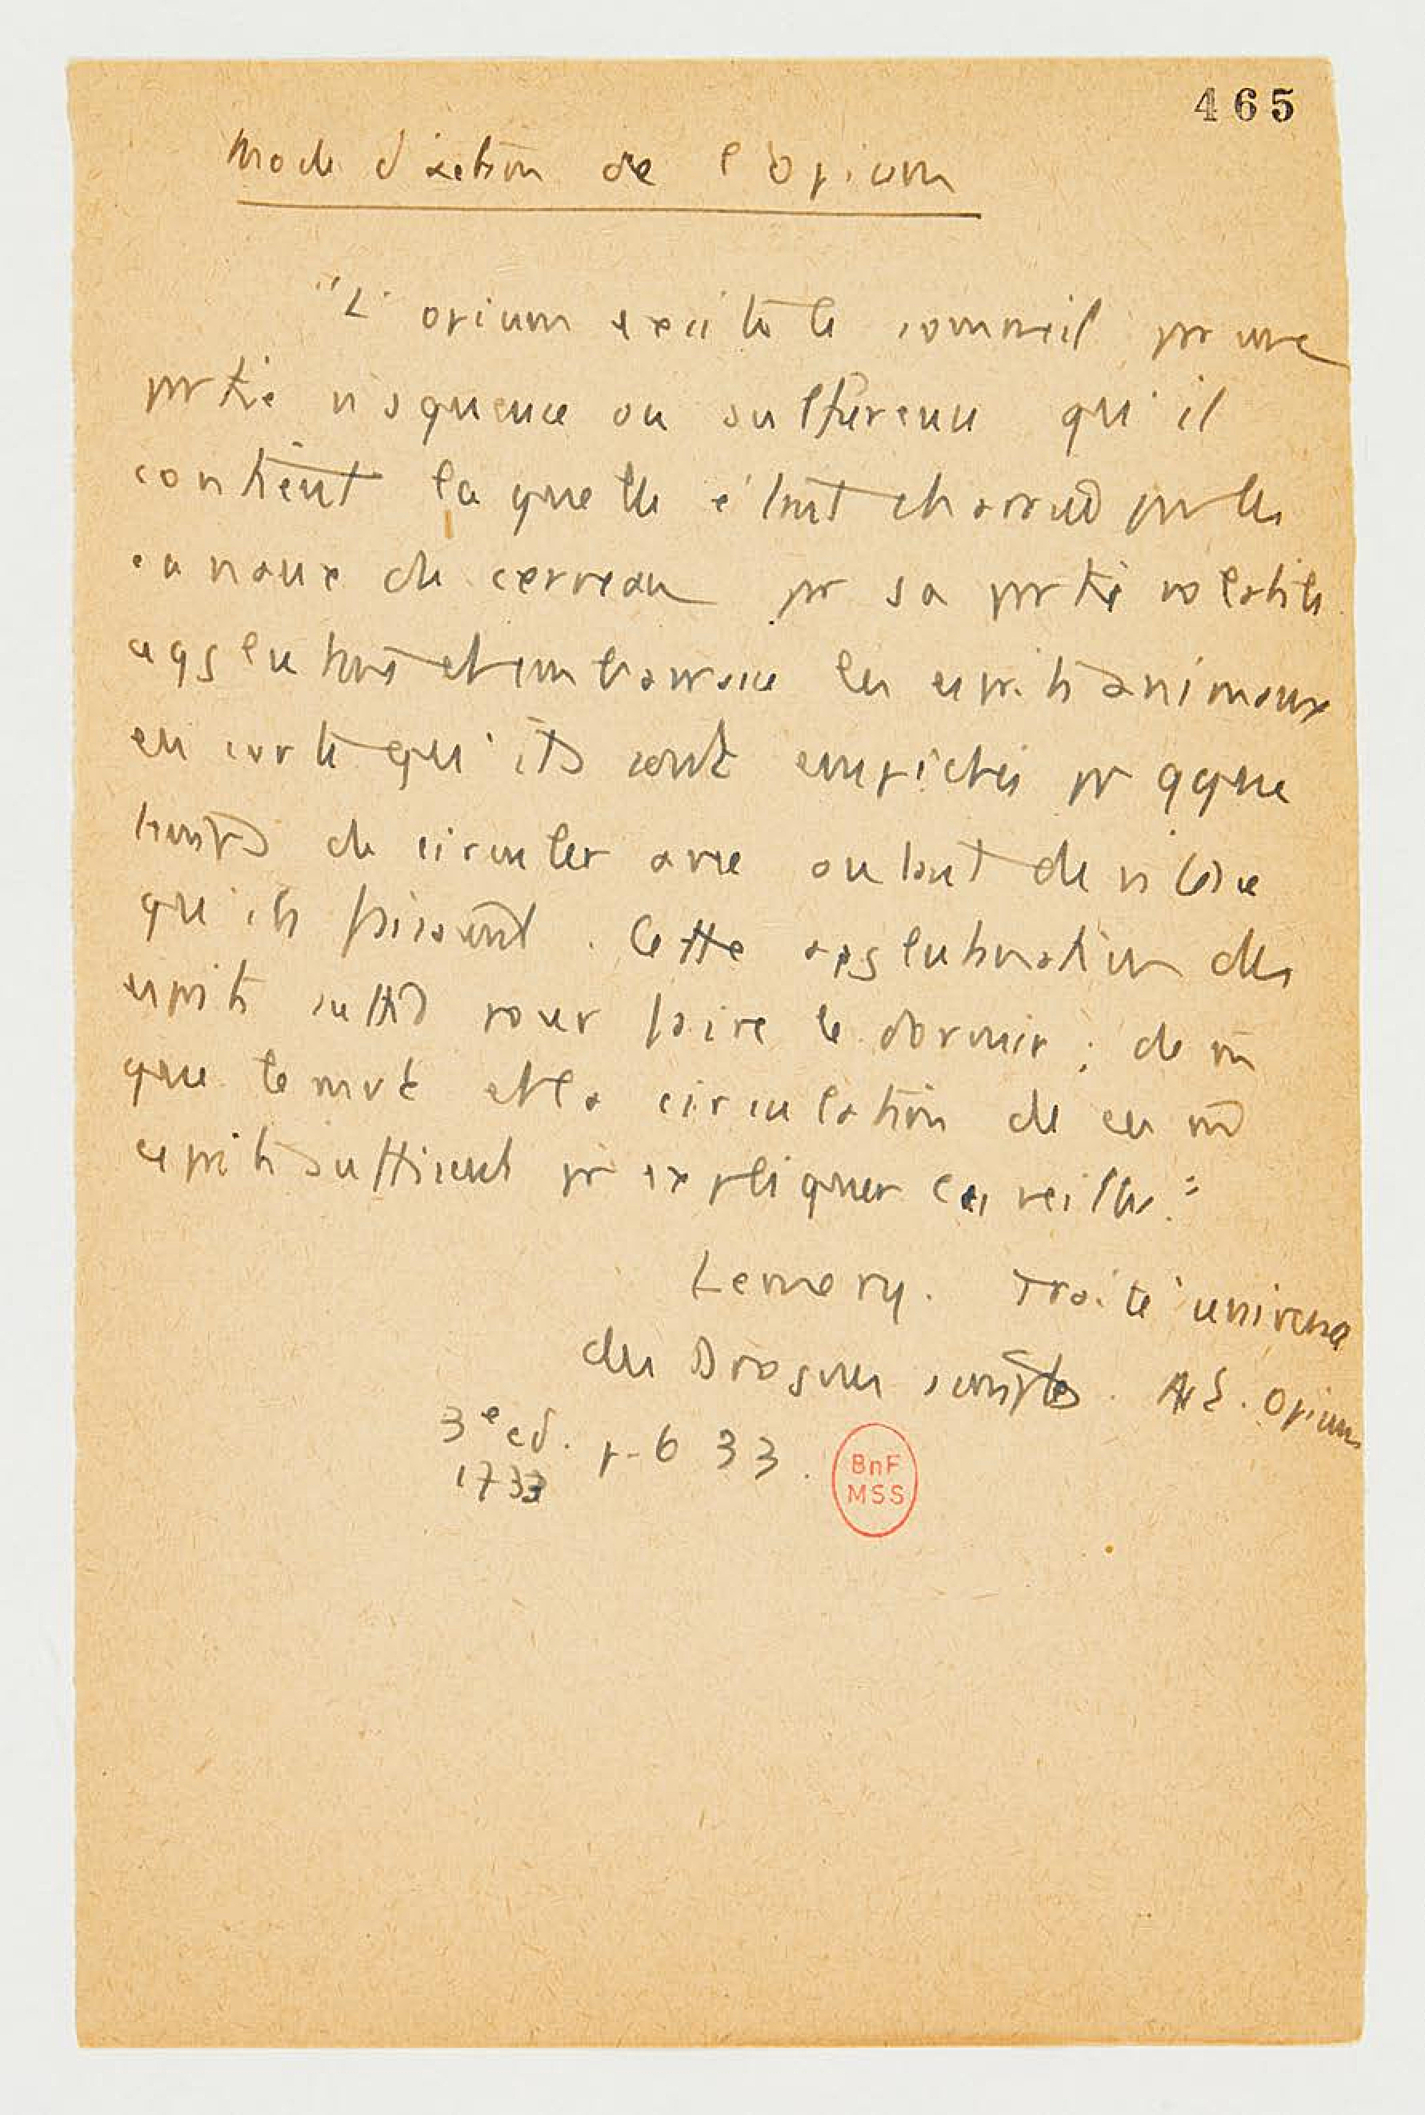 465
Mode d'action de l'opium
"L'opium excite le sommeil par une
partie visqueuse ou sulfureuse qu'il
contient laquelle étant charriée par les
canaux du cerveau par sa partie volatile
agglutine et embarrasse les esprits animaux
en sorte qu'ils sont empêchés pr qque
temps de circuler avec autant de vitesse
qu'ils faisaient. Cette agglutination des
esprits suffit pour faire le dormir ; de m
que le mvt et la circulation de ces m
esprits suffisent pr expliquer les veilles."
Lemery. Traité universel
des Drogues simples. Art. Opium
3e ed. p. 633.
1733
BnF
MSS